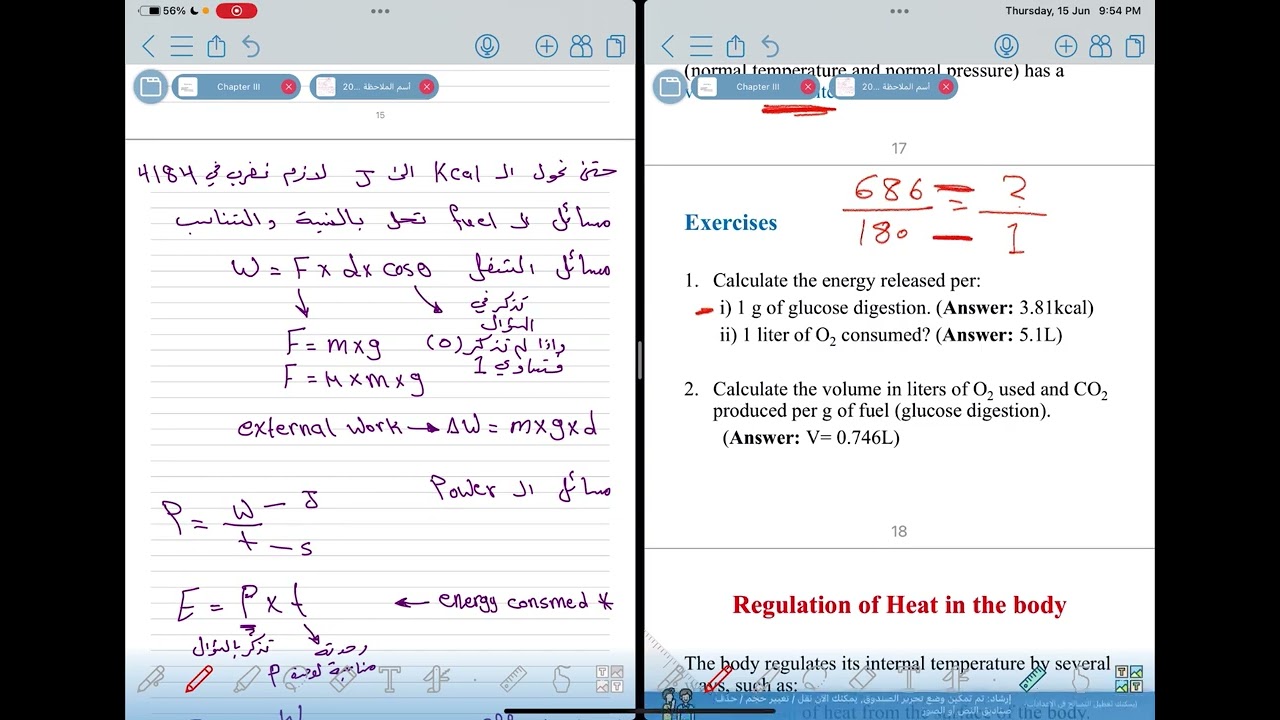 56%
Chapter III
20... أسم الملاحظة
15
حتى نحول الـ Kcal الى J لازم نضرب في 4184
مسائل الـ fuel تحل بالنسبة والتناسب
مسائل الشغل W = F x d x cosθ
تذكر في
السؤال
واذا لم تذكر (θ)
فتساوي 1
F = m x g
F = μ x m x g
external work → ΔW = m x g x d
مسائل الـ Power
P = W — J
t — s
E = P x t ← energy consmed *
تذكر بالسؤال
وحدته
مناسبة لوحدة P
Thursday, 15 Jun 9:54 PM
(normal temperature and normal pressure) has a
Chapter III
20... أسم الملاحظة
17
686 = 2
180 — 1
Exercises
1. Calculate the energy released per:
i) 1 g of glucose digestion. (Answer: 3.81kcal)
ii) 1 liter of O₂ consumed? (Answer: 5.1L)
2. Calculate the volume in liters of O₂ used and CO₂
produced per g of fuel (glucose digestion).
(Answer: V= 0.746L)
18
Regulation of Heat in the body
The body regulates its internal temperature by several
ways, such as:
إرشاد: تم تمكين وضع تحرير الصندوق, يمكنك الآن نقل / تغيير حجم / حذف
صناديق النص أو الصور
(يمكنك تعطيل النصائح في الإعدادات)
of heat from the body.